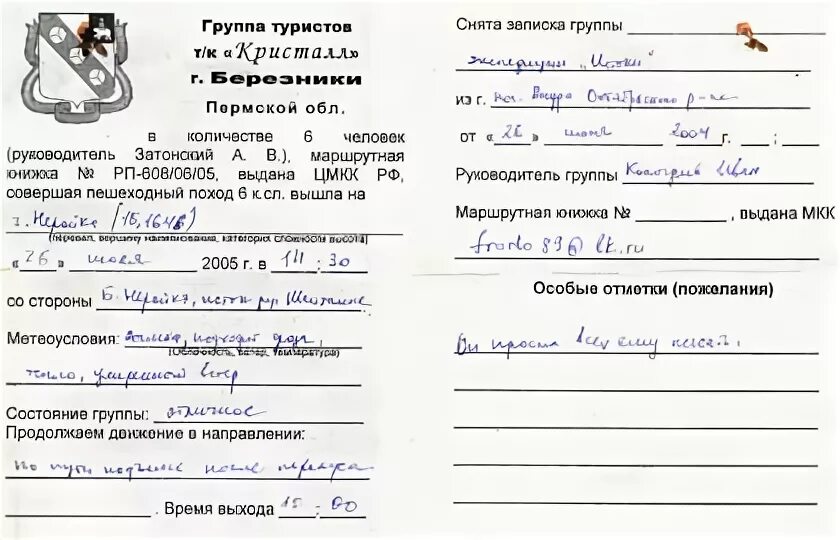 Группа туристов
т/к «Кристалл»
г. Березники
Пермской обл.
в количестве 6 человек
(руководитель Затонский А. В.), маршрутная
книжка № РП-608/06/05, выдана ЦМКК РФ,
совершая пешеходный поход 6 к.сл. вышла на
г. Неройка (15,1646)
(перевал, вершину наименование, категория сложности высота)
«26» июля 2005 г. в 14:30
со стороны Б. Неройка, исток рр
Метеоусловия:
(Облачность, ветер, температура)
тепло, умеренный ветер
Состояние группы: отличное
Продолжаем движение в направлении:
по пути подъема после
. Время выхода 15:00
Снята записка группы
экспедиции "Истоки"
из г. Октябрьского р-на
от « » июля 2004 г. :
Руководитель группы Иван
Маршрутная книжка № , выдана МКК
frodo89@bk.ru
Особые отметки (пожелания)
Он просил всех ему писать.